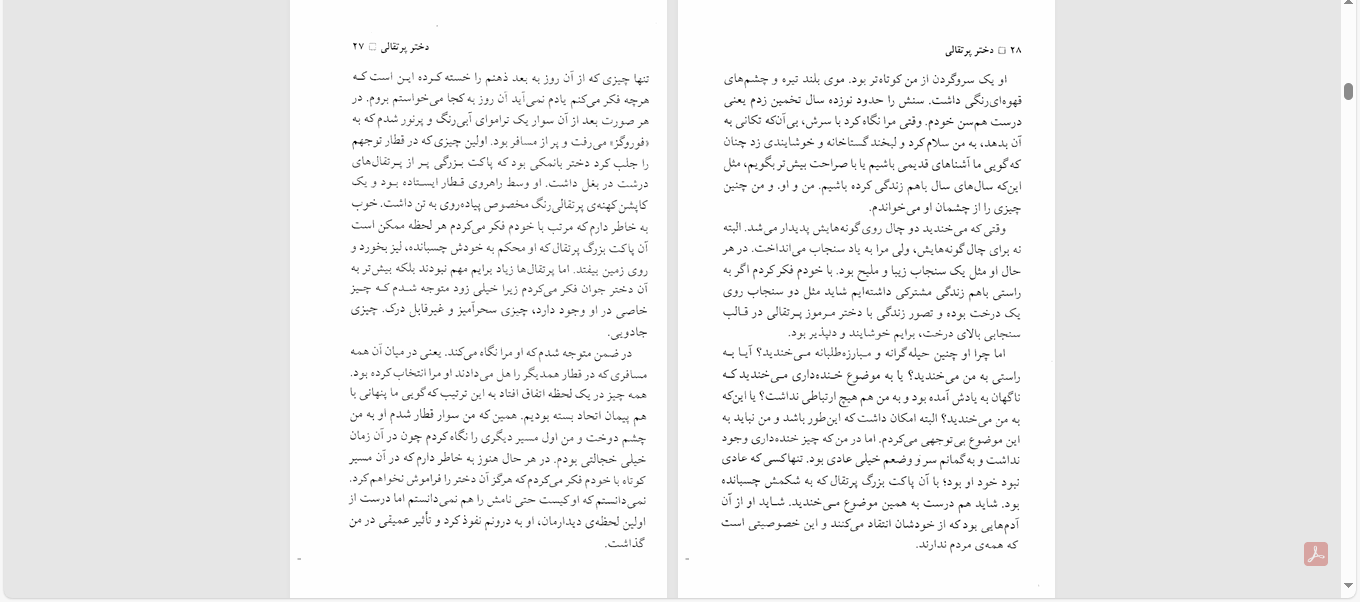 دختر پرتقالی □ ۲۷
تنها چیزی که از آن روز به بعد ذهنم را خسته کرده این است که
هرچه فکر می‌کنم یادم نمی‌آید آن روز به کجا می‌خواستم بروم. در
هر صورت بعد از آن سوار یک تراموای آبی‌رنگ و پرنور شدم که به
«فوروگنر» می‌رفت و پر از مسافر بود. اولین چیزی که در قطار توجهم
را جلب کرد دختر بانمکی بود که پاکت بزرگی پر از پرتقال‌های
درشت در بغل داشت. او وسط راهروی قطار ایستاده بود و یک
کاپشن کهنه‌ی پرتقالی‌رنگ مخصوص پیاده‌روی به تن داشت. خوب
به خاطر دارم که مرتب با خودم فکر می‌کردم هر لحظه ممکن است
آن پاکت بزرگ پرتقال که او محکم به خودش چسبانده، لیز بخورد و
روی زمین بیفتد. اما پرتقال‌ها زیاد برایم مهم نبودند بلکه بیش‌تر به
آن دختر جوان فکر می‌کردم زیرا خیلی زود متوجه شدم که چیز
خاصی در او وجود دارد، چیزی سحرآمیز و غیرقابل درک. چیزی
جادویی.
در ضمن متوجه شدم که او مرا نگاه می‌کند. یعنی در میان آن همه
مسافری که در قطار همدیگر را هل می‌دادند او مرا انتخاب کرده بود.
همه چیز در یک لحظه اتفاق افتاد به این ترتیب که گویی ما پنهانی با
هم پیمان اتحاد بسته بودیم. همین که من سوار قطار شدم او به من
چشم دوخت و من اول مسیر دیگری را نگاه کردم چون در آن زمان
خیلی خجالتی بودم. در هر حال هنوز به خاطر دارم که در آن مسیر
کوتاه با خودم فکر می‌کردم که هرگز آن دختر را فراموش نخواهم کرد.
نمی‌دانستم که او کیست حتی نامش را هم نمی‌دانستم اما درست از
اولین لحظه‌ی دیدارمان، او به درونم نفوذ کرد و تأثیر عمیقی در من
گذاشت.
۲۸ □ دختر پرتقالی
او یک سروگردن از من کوتاه‌تر بود. موی بلند تیره و چشم‌های
قهوه‌ای‌رنگی داشت. سنش را حدود نوزده سال تخمین زدم یعنی
درست هم‌سن خودم. وقتی مرا نگاه کرد با سرش، بی‌آن‌که تکانی به
آن بدهد، به من سلام کرد و لبخند گستاخانه و خوشایندی زد چنان
که گویی ما آشناهای قدیمی باشیم یا با صراحت بیش‌تر بگویم، مثل
این‌که سال‌های سال باهم زندگی کرده باشیم. من و او. و من چنین
چیزی را از چشمان او می‌خواندم.
وقتی که می‌خندید دو چال روی گونه‌هایش پدیدار می‌شد. البته
نه برای چال گونه‌هایش، ولی مرا به یاد سنجاب می‌انداخت. در هر
حال او مثل یک سنجاب زیبا و ملیح بود. با خودم فکر کردم اگر به
راستی باهم زندگی مشترکی داشته‌ایم شاید مثل دو سنجاب روی
یک درخت بوده و تصور زندگی با دختر مرموز پرتقالی در قالب
سنجابی بالای درخت، برایم خوشایند و دلپذیر بود.
اما چرا او چنین حیله‌گرانه و مبارزه‌طلبانه می‌خندید؟ آیا به
راستی به من می‌خندید؟ یا به موضوع خنده‌داری می‌خندید که
ناگهان به یادش آمده بود و به من هم هیچ ارتباطی نداشت؟ یا این‌که
به من می‌خندید؟ البته امکان داشت که این‌طور باشد و من نباید به
این موضوع بی‌توجهی می‌کردم. اما در من که چیز خنده‌داری وجود
نداشت و به‌گمانم سر و وضعم خیلی عادی بود. تنها کسی که عادی
نبود خود او بود؛ با آن پاکت بزرگ پرتقال که به شکمش چسبانده
بود. شاید هم درست به همین موضوع می‌خندید. شاید او از آن
آدم‌هایی بود که از خودشان انتقاد می‌کنند و این خصوصیتی است
که همه‌ی مردم ندارند.